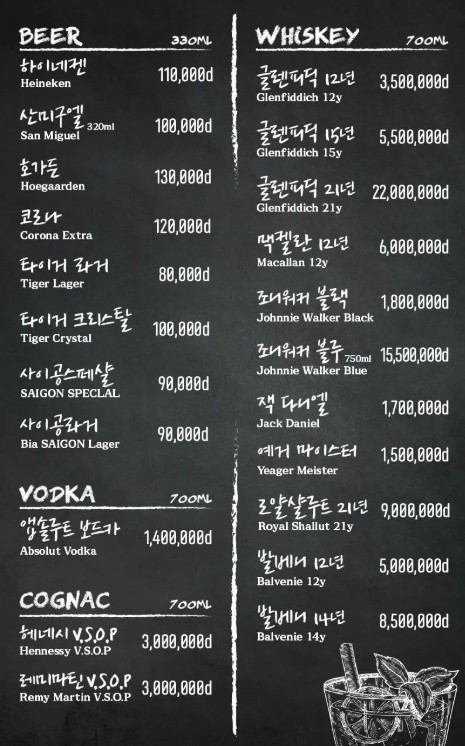 BEER 330ML
하이네켄 110,000đ
Heineken
산미구엘 320ml 100,000đ
San Miguel
호가든 130,000đ
Hoegaarden
코로나 120,000đ
Corona Extra
타이거 라거 80,000đ
Tiger Lager
타이거 크리스탈 100,000đ
Tiger Crystal
사이공스페샬 90,000đ
SAIGON SPECLAL
사이공라거 90,000đ
Bia SAIGON Lager
VODKA 700ML
앱솔루트 보드카 1,400,000đ
Absolut Vodka
COGNAC 700ML
헤네시 V.S.O.P 3,000,000đ
Hennessy V.S.O.P
레미마틴 V.S.O.P 3,000,000đ
Remy Martin V.S.O.P
WHISKEY 700ML
글렌피딕 12년 3,500,000đ
Glenfiddich 12y
글렌피딕 15년 5,500,000đ
Glenfiddich 15y
글렌피딕 21년 22,000,000đ
Glenfiddich 21y
맥켈란 12년 6,000,000đ
Macallan 12y
조니워커 블랙 1,800,000đ
Johnnie Walker Black
조니워커 블루 750ml 15,500,000đ
Johnnie Walker Blue
잭 다니엘 1,700,000đ
Jack Daniel
예거 마이스터 1,500,000đ
Yeager Meister
로얄샬루트 21년 9,000,000đ
Royal Shallut 21y
발베니 12년 5,000,000đ
Balvenie 12y
발베니 14년 8,500,000đ
Balvenie 14y